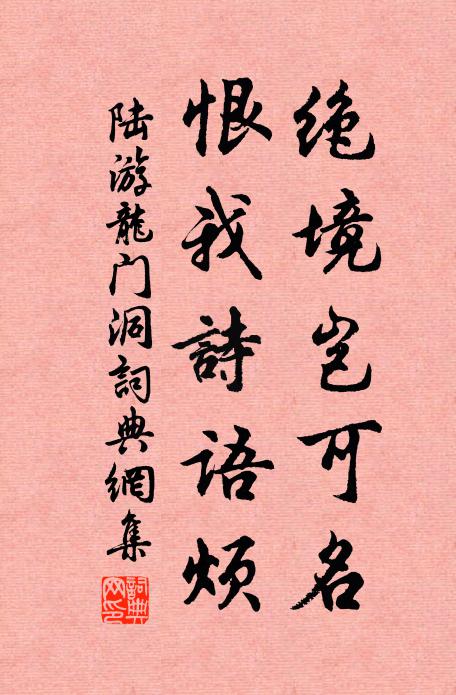 绝境岂可名
恨我詩语烦
陆游龍门洞詞典網集
詞典网印